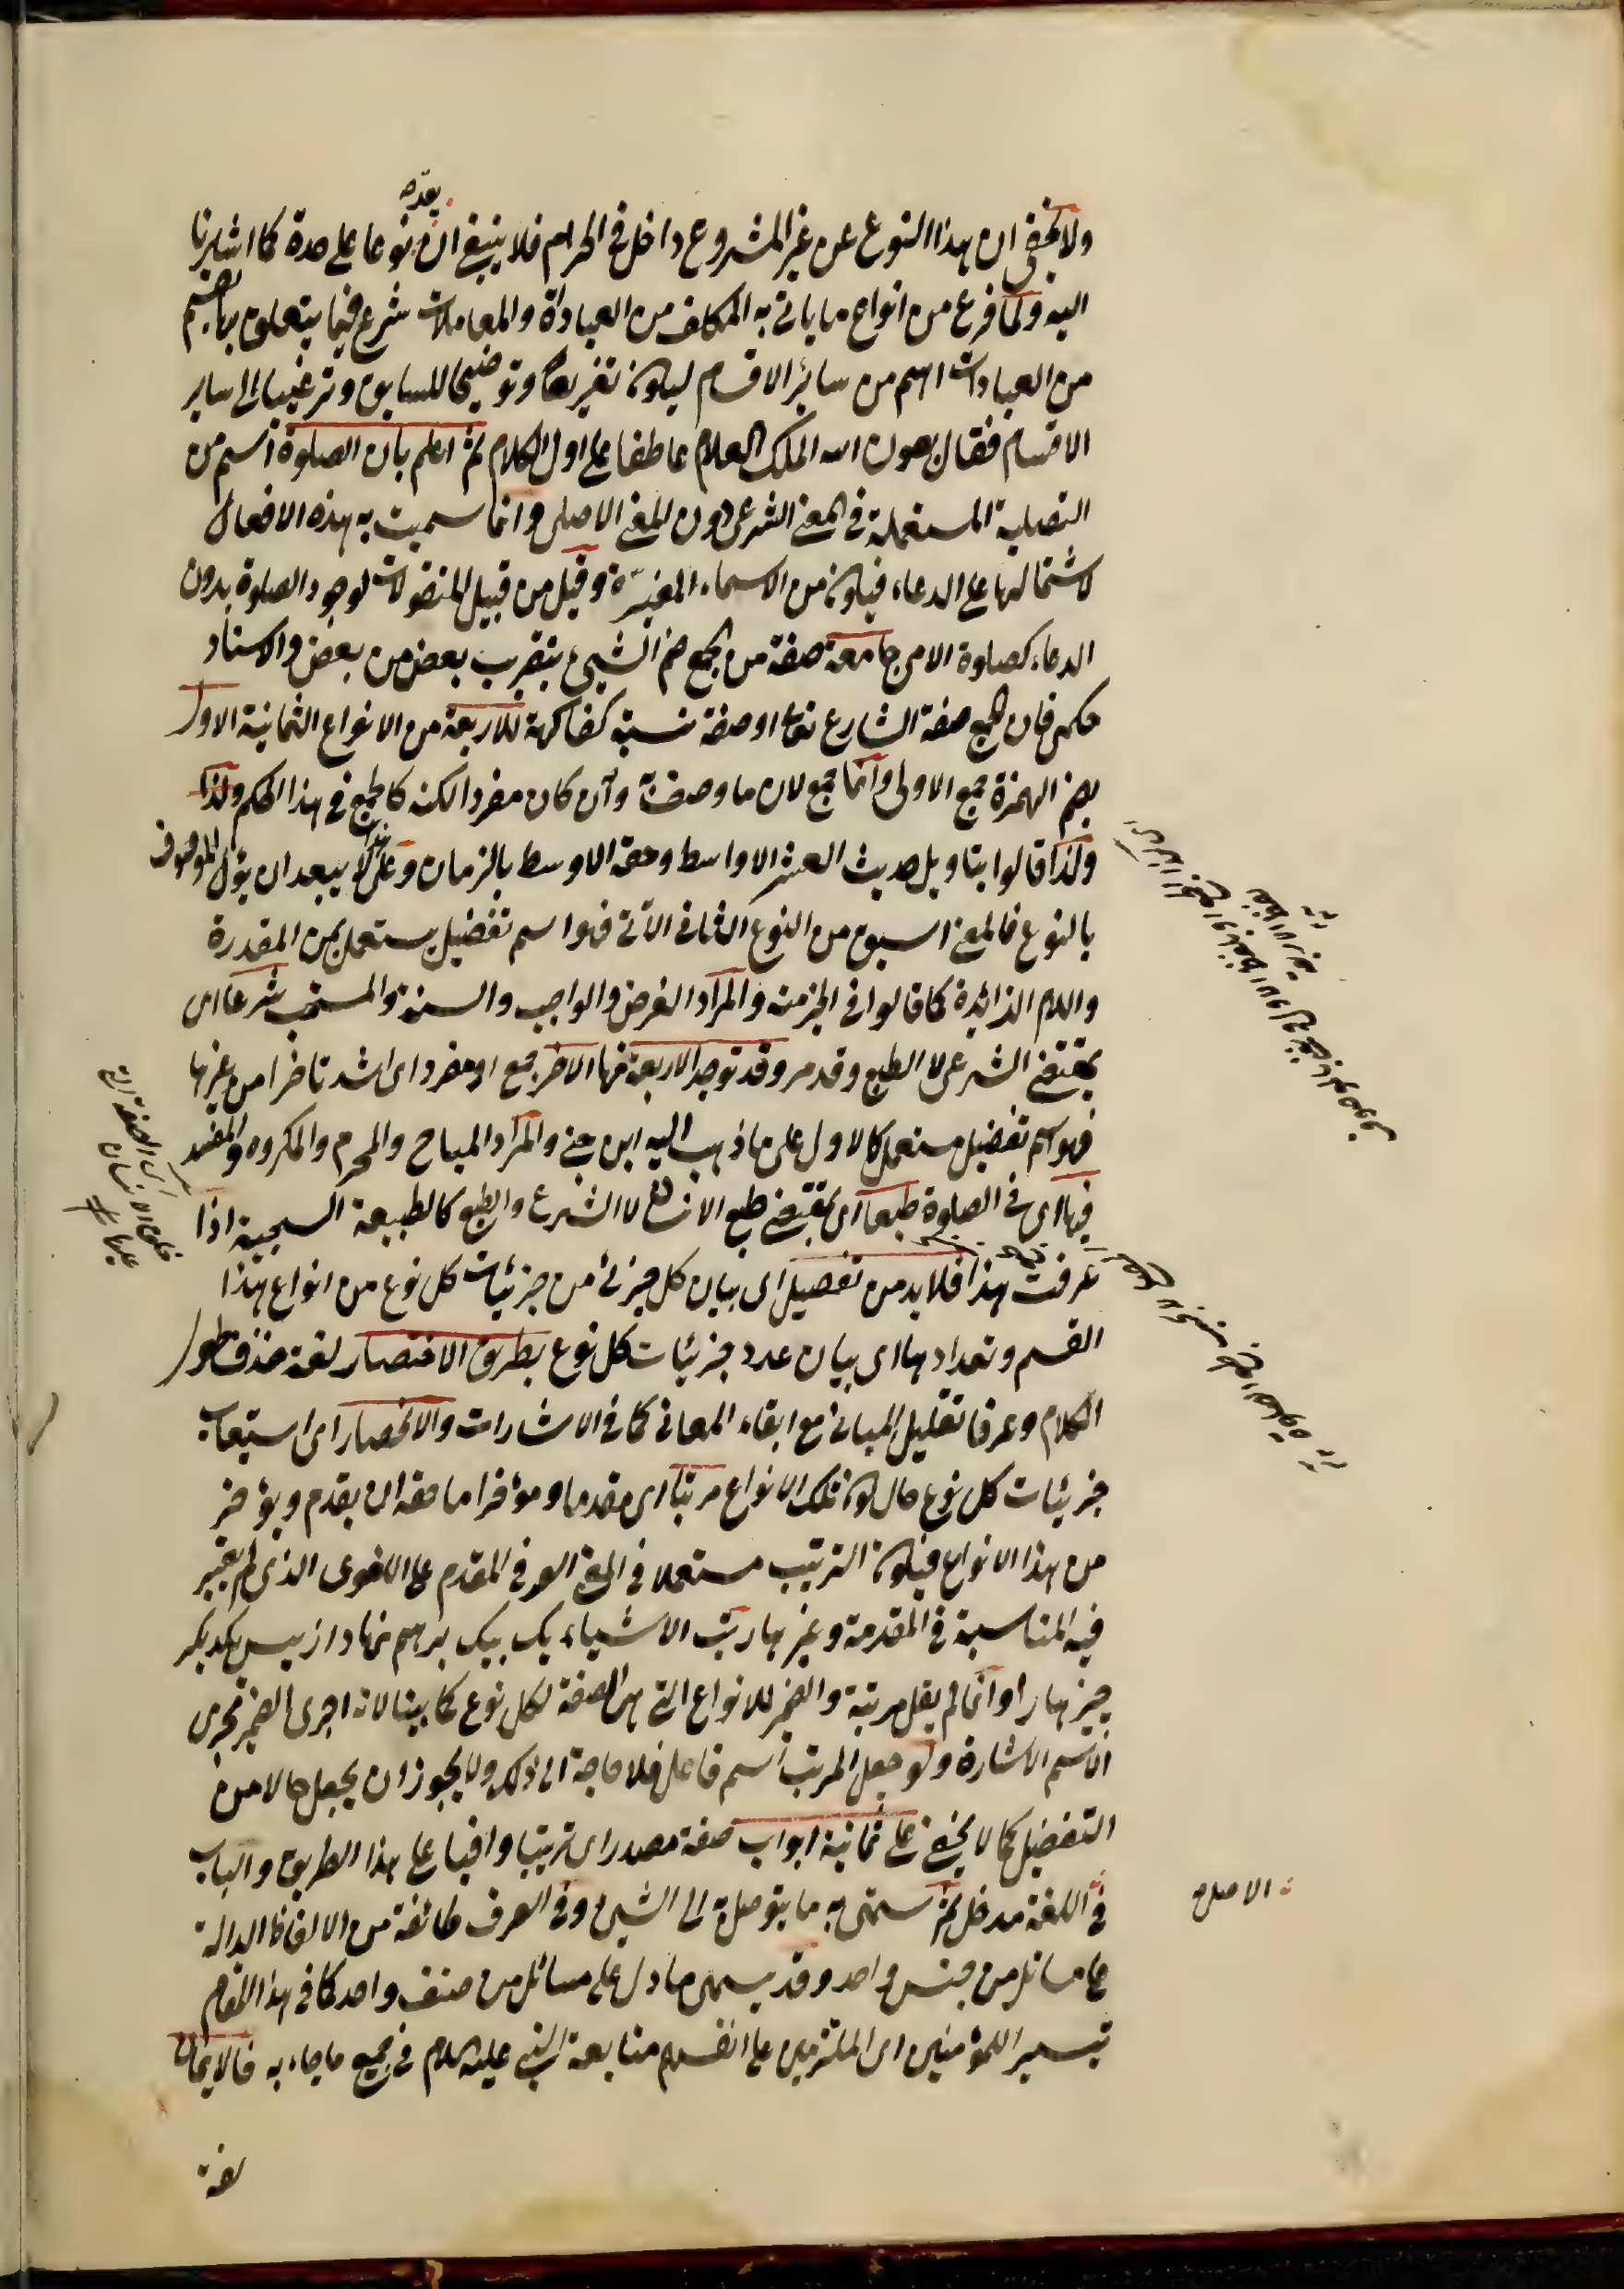 ولا يخفى ان هذا النوع عن غير المشروع داخل في الحرام فلا ينبغي ان يعدّ نوعا على حدة كما اشرنا
اليه ولما فرغ من انواع ما ياتي به المكلف من العبادات والمعاملات شرع فيما يتعلق بها
من العبادات اهم من سائر الاقسام ليكون تفريعا وتوضيحا للسابق وترغيبا الى ساير
الاقسام فقال بعون الله الملك العلام عاطفا على اول الكلام ثم اعلم بان الصلوة اسم من
التصلية المستعملة في المعنى الشرعى دون المعنى الاصلى وانما سميت به هذه الافعال
لاشتمالها على الدعاء فيكون من الاسماء المغيرة وقيل من قبيل المنقولات لوجود الصلوة بدون
الدعاء كصلوة الامى جامعة صفة من الجمع ضم الشيء بتقريب بعض من بعض والاسناد
حكمى فان الجمع صفة الشارع تعالى او صفة نسبة كفاكهة للاربعة من الانواع الثمانية الاول
بضم الهمزة جمع الاولى وانما جمع لان ما وصف به وان كان مفردا لكنه كالجمع في هذا الحكم
ولذا قالوا بتاويل حديث العشر الاواسط وحقه الاوسط بالزمان وعلى هذا لا يبعد ان يؤل الموصوف
بالنوع فالمعنى اسبق من النوع الثاني الآتي فهو اسم تفضيل يستعمل بمن المقدرة
واللام الزائدة كما قالوا في الخير منه والمراد الفرض والواجب والسنة والمستحب شرعا اى
بمقتضى الشرعى لا الطبع وقد مر وقد توجد الاربعة فيها الاخر جمع او مفرد اى اشد تاخرا من غيرها
فهو اسم تفضيل مستعمل كالاول على ما ذهب اليه ابن جنى والمراد المباح والمحرم والمكروه والمفسد
فيها اى في الصلوة طبعا اى بمقتضى طبع الانسان لا الشرع والطبع كالطبيعة السجية اذا
عرفت هذا فلا بد من تفصيل اى بيان كل جزئى من جزئيات كل نوع من انواع هذا
القسم وتعدادها اى بيان عدد جزئيات كل نوع بطريق الاختصار لغة حذف طول
الكلام وعرفا تقليل المبانى مع ابقاء المعانى كما في الاشارات والانحصار اى استيعاب
جزئيات كل نوع حال كون تلك الانواع مرتبا اى مقدما ومؤخرا ما حقه ان يقدم ويؤخر
من هذا الانواع فيكون الترتيب مستعملا في المعنى العرفى المقدم على اللغوى الذى لم يعتبر
فيه المناسبة في المقدمة وغيرها رتب الاشياء يك بيك برهم نهاد از پس يكديكر
چيزها را وانما لم يقل مرتبة والضمير للانواع التى هى الصفة لكل نوع كما بينا لانه اجرى الضمير مجرى
الاسم الاشارة ولو جعل المرتب اسم فاعل فلا حاجة الى ذلك ولا يجوز ان يجعل حالا من
التفضيل كما لا يخفى على ثمانية ابواب صفة مصدر اى ترتيبا واقعا على هذا الطريق والباب
في اللغة مدخل ثم سمى به ما يتوصل به الى الشىء وفى العرف طائفة من الالفاظ الدالة
على مسائل من جنس واحد وقد يسمى ما دل على مسائل من صنف واحد كما في هذا المقام
تيسيرا للمؤمنين اى الملتزمين على انفسهم متابعة النبى عليه السلام في جميع ما جاء به فالايمان
لغة
الاصل
اى الصفة التى
خلق الانسان
عليها